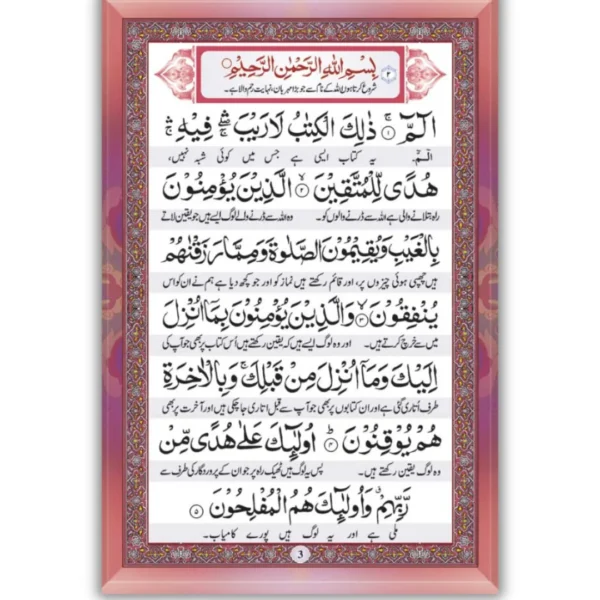 بِسْمِ اللّٰهِ الرَّحْمٰنِ الرَّحِيْمِ
۲
شروع کرتا ہوں اللہ کے نام سے جو بڑا مہربان، نہایت رحم والا ہے۔
الٓمّٓ ۚ﴿۱﴾ ذٰلِكَ الْكِتٰبُ لَا رَيْبَ ۛۖ فِيْهِ ۛۚ
الٓمّٓ۔ یہ کتاب ایسی ہے جس میں کوئی شبہ نہیں،
هُدًى لِّلْمُتَّقِيْنَ ۙ﴿۲﴾ الَّذِيْنَ يُؤْمِنُوْنَ
راہ بتلانے والی ہے اللہ سے ڈرنے والوں کو۔ وہ اللہ سے ڈرنے والے لوگ ایسے ہیں جو یقین لاتے
بِالْغَيْبِ وَيُقِيْمُوْنَ الصَّلٰوةَ وَمِمَّا رَزَقْنٰهُمْ
ہیں چھپی ہوئی چیزوں پر، اور قائم رکھتے ہیں نماز کو اور جو کچھ دیا ہے ہم نے ان کو اس
يُنْفِقُوْنَ ۙ﴿۳﴾ وَالَّذِيْنَ يُؤْمِنُوْنَ بِمَآ اُنْزِلَ
میں سے خرچ کرتے ہیں۔ اور وہ لوگ ایسے ہیں کہ یقین رکھتے ہیں اُس کتاب پر بھی جو آپ کی
اِلَيْكَ وَمَآ اُنْزِلَ مِنْ قَبْلِكَ ۚ وَبِالْاٰخِرَةِ
طرف اُتاری گئی ہے اور ان کتابوں پر بھی جو آپ سے قبل اتاری جا چکی ہیں اور آخرت پر بھی
هُمْ يُوْقِنُوْنَ ؕ﴿۴﴾ اُولٰٓئِكَ عَلٰى هُدًى مِّنْ
وہ لوگ یقین رکھتے ہیں۔ پس یہ لوگ ہیں ٹھیک راہ پر جو ان کے پروردگار کی طرف سے
رَّبِّهِمْ ۗ وَاُولٰٓئِكَ هُمُ الْمُفْلِحُوْنَ ﴿۵﴾
ملی ہے اور یہ لوگ ہیں پورے کامیاب۔
3